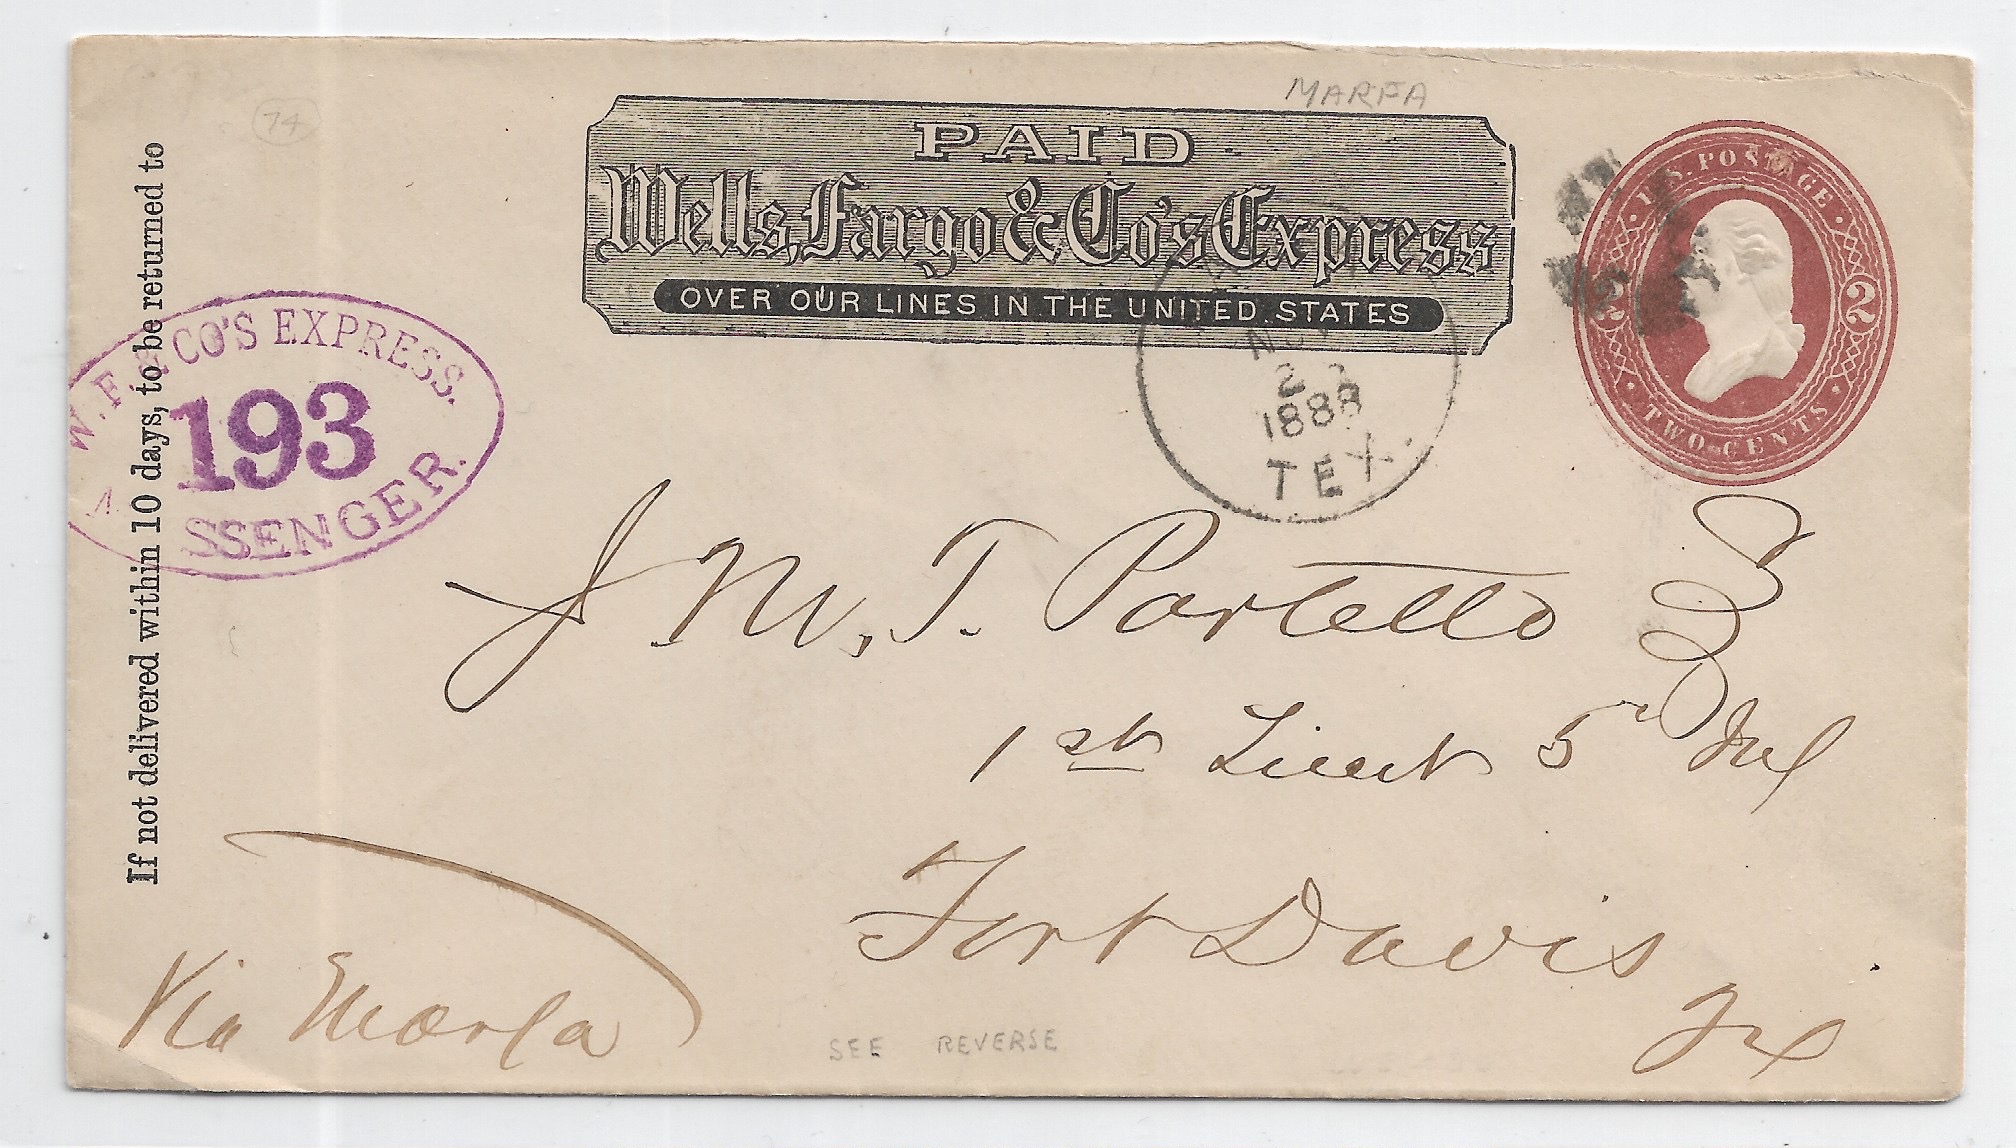 MARFA
74
PAID
Wells, Fargo & Co's Express
OVER OUR LINES IN THE UNITED STATES
U.S. POSTAGE
2 2
TWO CENTS
If not delivered within 10 days, to be returned to
W. F. & CO'S EXPRESS.
193
SSENGER.
1888
TEX.
J. M. T. Partello
1st Lieut 5th Inf
Fort Davis
Tex
Via Marfa
SEE REVERSE